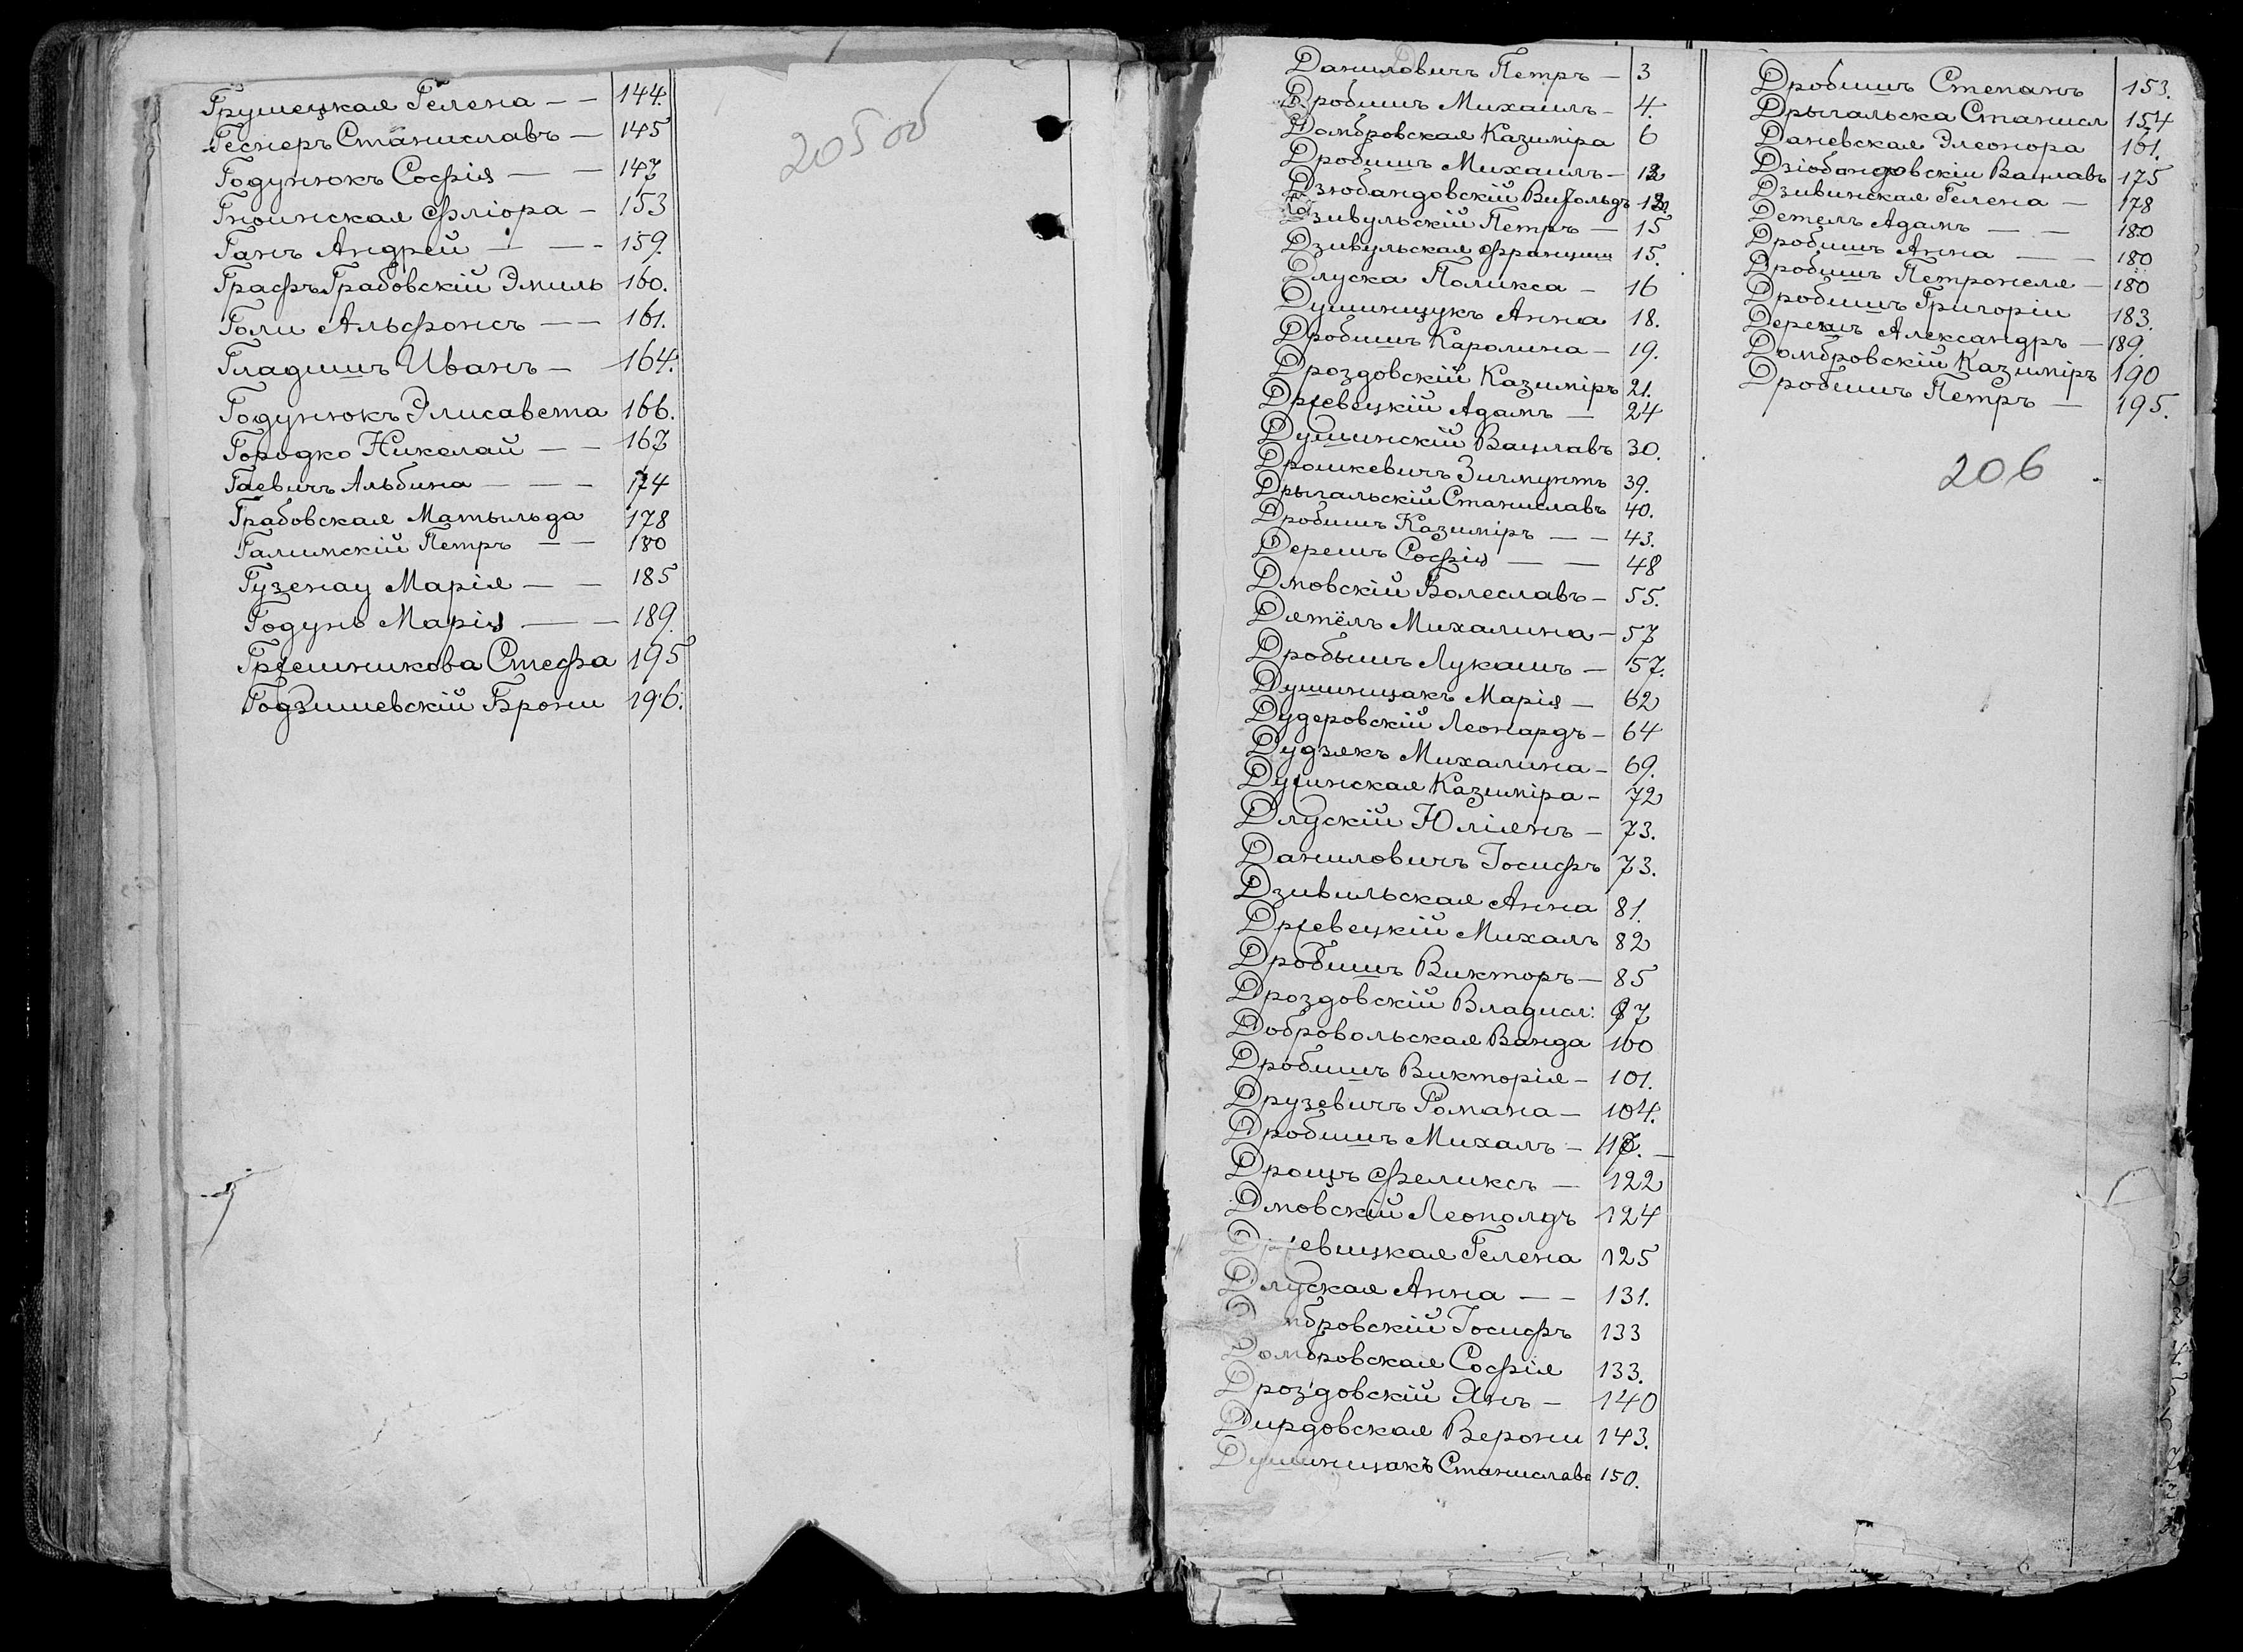 Грушецкая Гелена — — 144.
Геснеръ Станиславъ — 145
Годунюкъ Софія — — 147
Гноинская Фліора — 153
Ганъ Андрей — — — 159.
Графъ Грабовскій Эмиль 160.
Голи Альфонсъ — — 161.
Гладишъ Иванъ — 164.
Годунюкъ Элисавета 166.
Городко Николай — — 167
Гаевичъ Альбина — — — 174
Грабовская Матыльда 178
Галимскій Петръ — — 180
Гузенау Марія — — 185
Годунь Марія — — 189.
Гржешникова Стефа 195
Годзишевскій Брони 196.
205 об
Даниловичъ Петръ — 3
Дробишъ Михаилъ — 4.
Домбровская Казиміра 6
Дробишъ Михаилъ — 12
Дзюбандовскій Витольдъ 12.
Дзивульскій Петръ — 15
Дзивульская Франциш 15.
Длуска Поликса — 16
Душинщукъ Анна 18.
Дробишъ Каролина — 19.
Дроздовскій Казиміръ 21.
Држевецкій Адамъ — 24
Душинскій Вацлавъ 30.
Дрошкевичъ Зигмунтъ 39.
Дрыгальскій Станиславъ 40.
Дробишъ Казиміръ — — 43.
Дерешъ Софія — — 48
Дмовскій Болеславъ — 55.
Дятёлъ Михалина — 57
Дробышъ Лукашъ — 57.
Душинщакъ Марія — 62
Дудеровскій Леонардъ — 64
Дудзякъ Михалина — 69.
Дужинская Казиміра — 72
Длускій Юліянъ — 73.
Даниловичъ Іосифъ 73.
Дзивильская Анна 81.
Држевецкій Михалъ 82
Дробишъ Викторъ — 85
Дроздовскій Владисл: 87
Добровольская Ванда 100
Дробишъ Викторія — 101.
Друзевичъ Романа — 104.
Дробишъ Михалъ — 117. —
Дрощъ Феликсъ — 122
Дмовскій Леополдъ 124
Држевицкая Гелена 125
Длуская Анна — — 131.
Домбровскій Іосифъ 133
Домбровская Софія 133.
Дроздовскій Янъ — 140
Дирдовская Верони 143.
Душинщакъ Станислава 150.
Дробишъ Степанъ 153.
Дрыгальска Станисл 154
Даневская Элеонора 161.
Дзіобандовскій Вацлавъ 175
Дзивинская Гелена — 178
Детелъ Адамъ — — 180
Дробишъ Анна — — 180
Дробишъ Петронеля — 180
Дробишъ Григорій 183.
Дерешъ Александръ — 189.
Домбровскій Казиміръ 190
Дробишъ Петръ — 195.
206